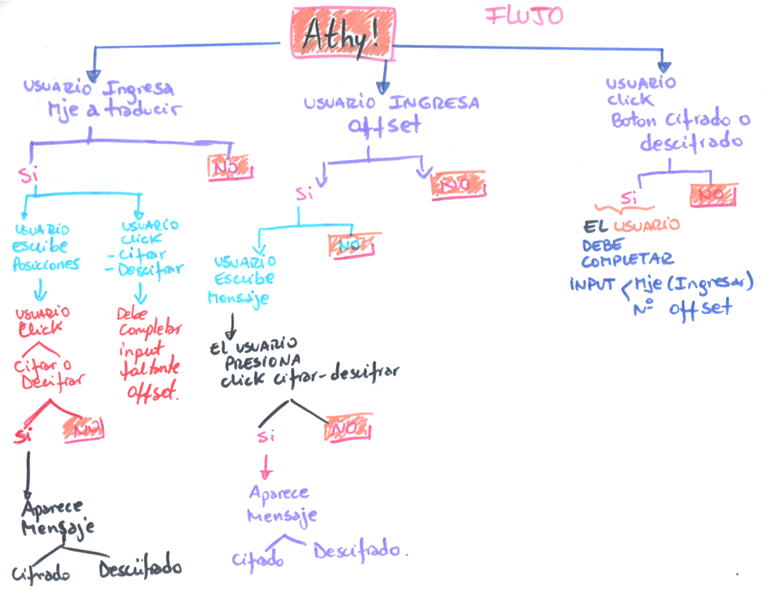 FLUJO
Athy!
USUARIO Ingresa
Mje a traducir
Si
NO
USUARIO
Escribe
Posiciones
USUARIO
Click
- Cifrar
- Descifrar
USUARIO
Click
Cifrar o
Decifrar
Debe
Completar
input
faltante
Offset.
Si
NO
Aparece
Mensaje
Cifrado
Descifrado
USUARIO INGRESA
Offset
Si
NO
NO
USUARIO
Escribe
Mensaje
EL USUARIO
PRESIONA
Click cifrar-descifrar
Si
NO
Aparece
Mensaje
Cifrado
Descifrado.
USUARIO
click
Boton Cifrado o
descifrado
Si
NO
EL USUARIO
DEBE
COMPLETAR
INPUT < Mje (Ingresar)
Nº offset